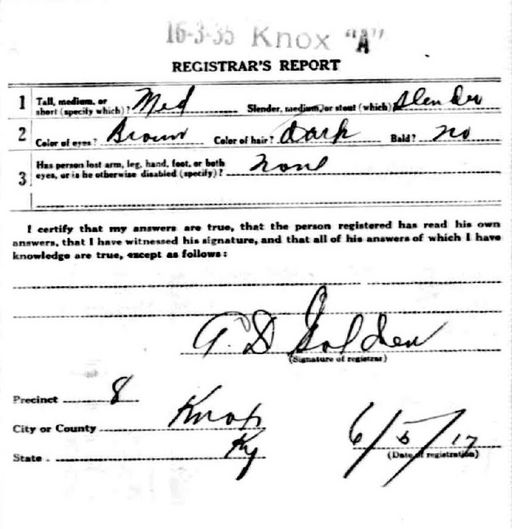 16-3-35 Knox "A"
REGISTRAR'S REPORT
1 Tall, medium, or short (specify which)? Med Slender, medium, or stout (which) Slender
2 Color of eyes? Brown Color of hair? dark Bald? no
3 Has person lost arm, leg, hand, foot, or both
eyes, or is he otherwise disabled (specify)? none
I certify that my answers are true, that the person registered has read his own
answers, that I have witnessed his signature, and that all of his answers of which I have
knowledge are true, except as follows:
G. D Golden
(Signature of registrar)
Precinct 8
City or County Knox
State Ky 6/5/17
(Date of registration)